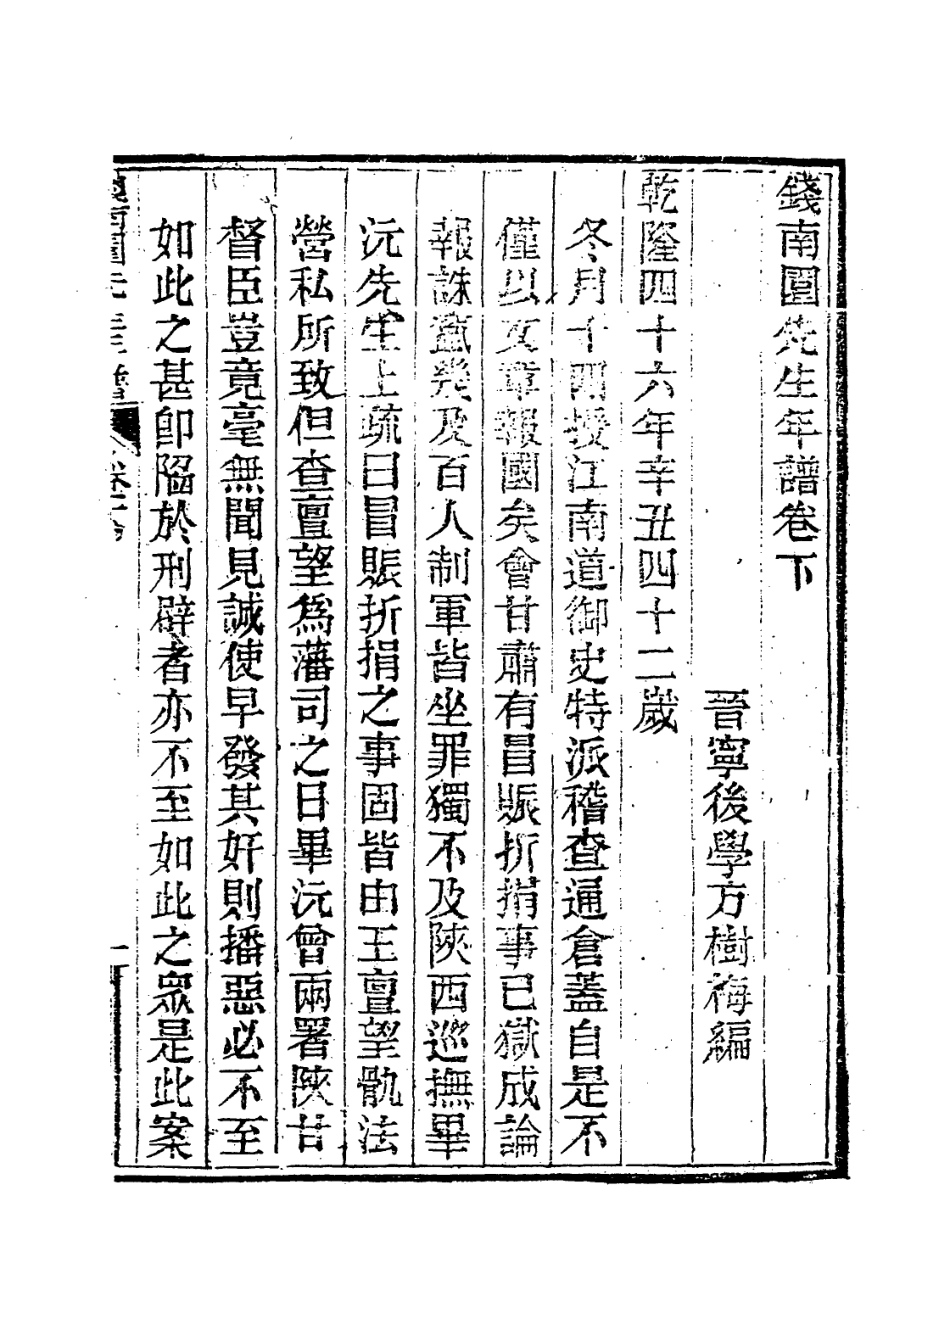 錢南園先生年譜卷下
晉寧後學方樹梅編
乾隆四十六年辛丑四十二歲
冬月十四授江南道御史特派稽查通倉蓋自是不
僅以文章報國矣會甘肅有冒賑折捐事已獄成論
報誅竄幾及百人制軍皆坐罪獨不及陝西巡撫畢
沅先生上疏曰冒賑折捐之事固皆由王亶望骫法
營私所致但查亶望為藩司之日畢沅曾兩署陝甘
督臣豈竟毫無聞見誠使早發其奸則播惡必不至
如此之甚卽陷於刑辟者亦不至如此之眾是此案
錢南園先生年譜 卷下 一